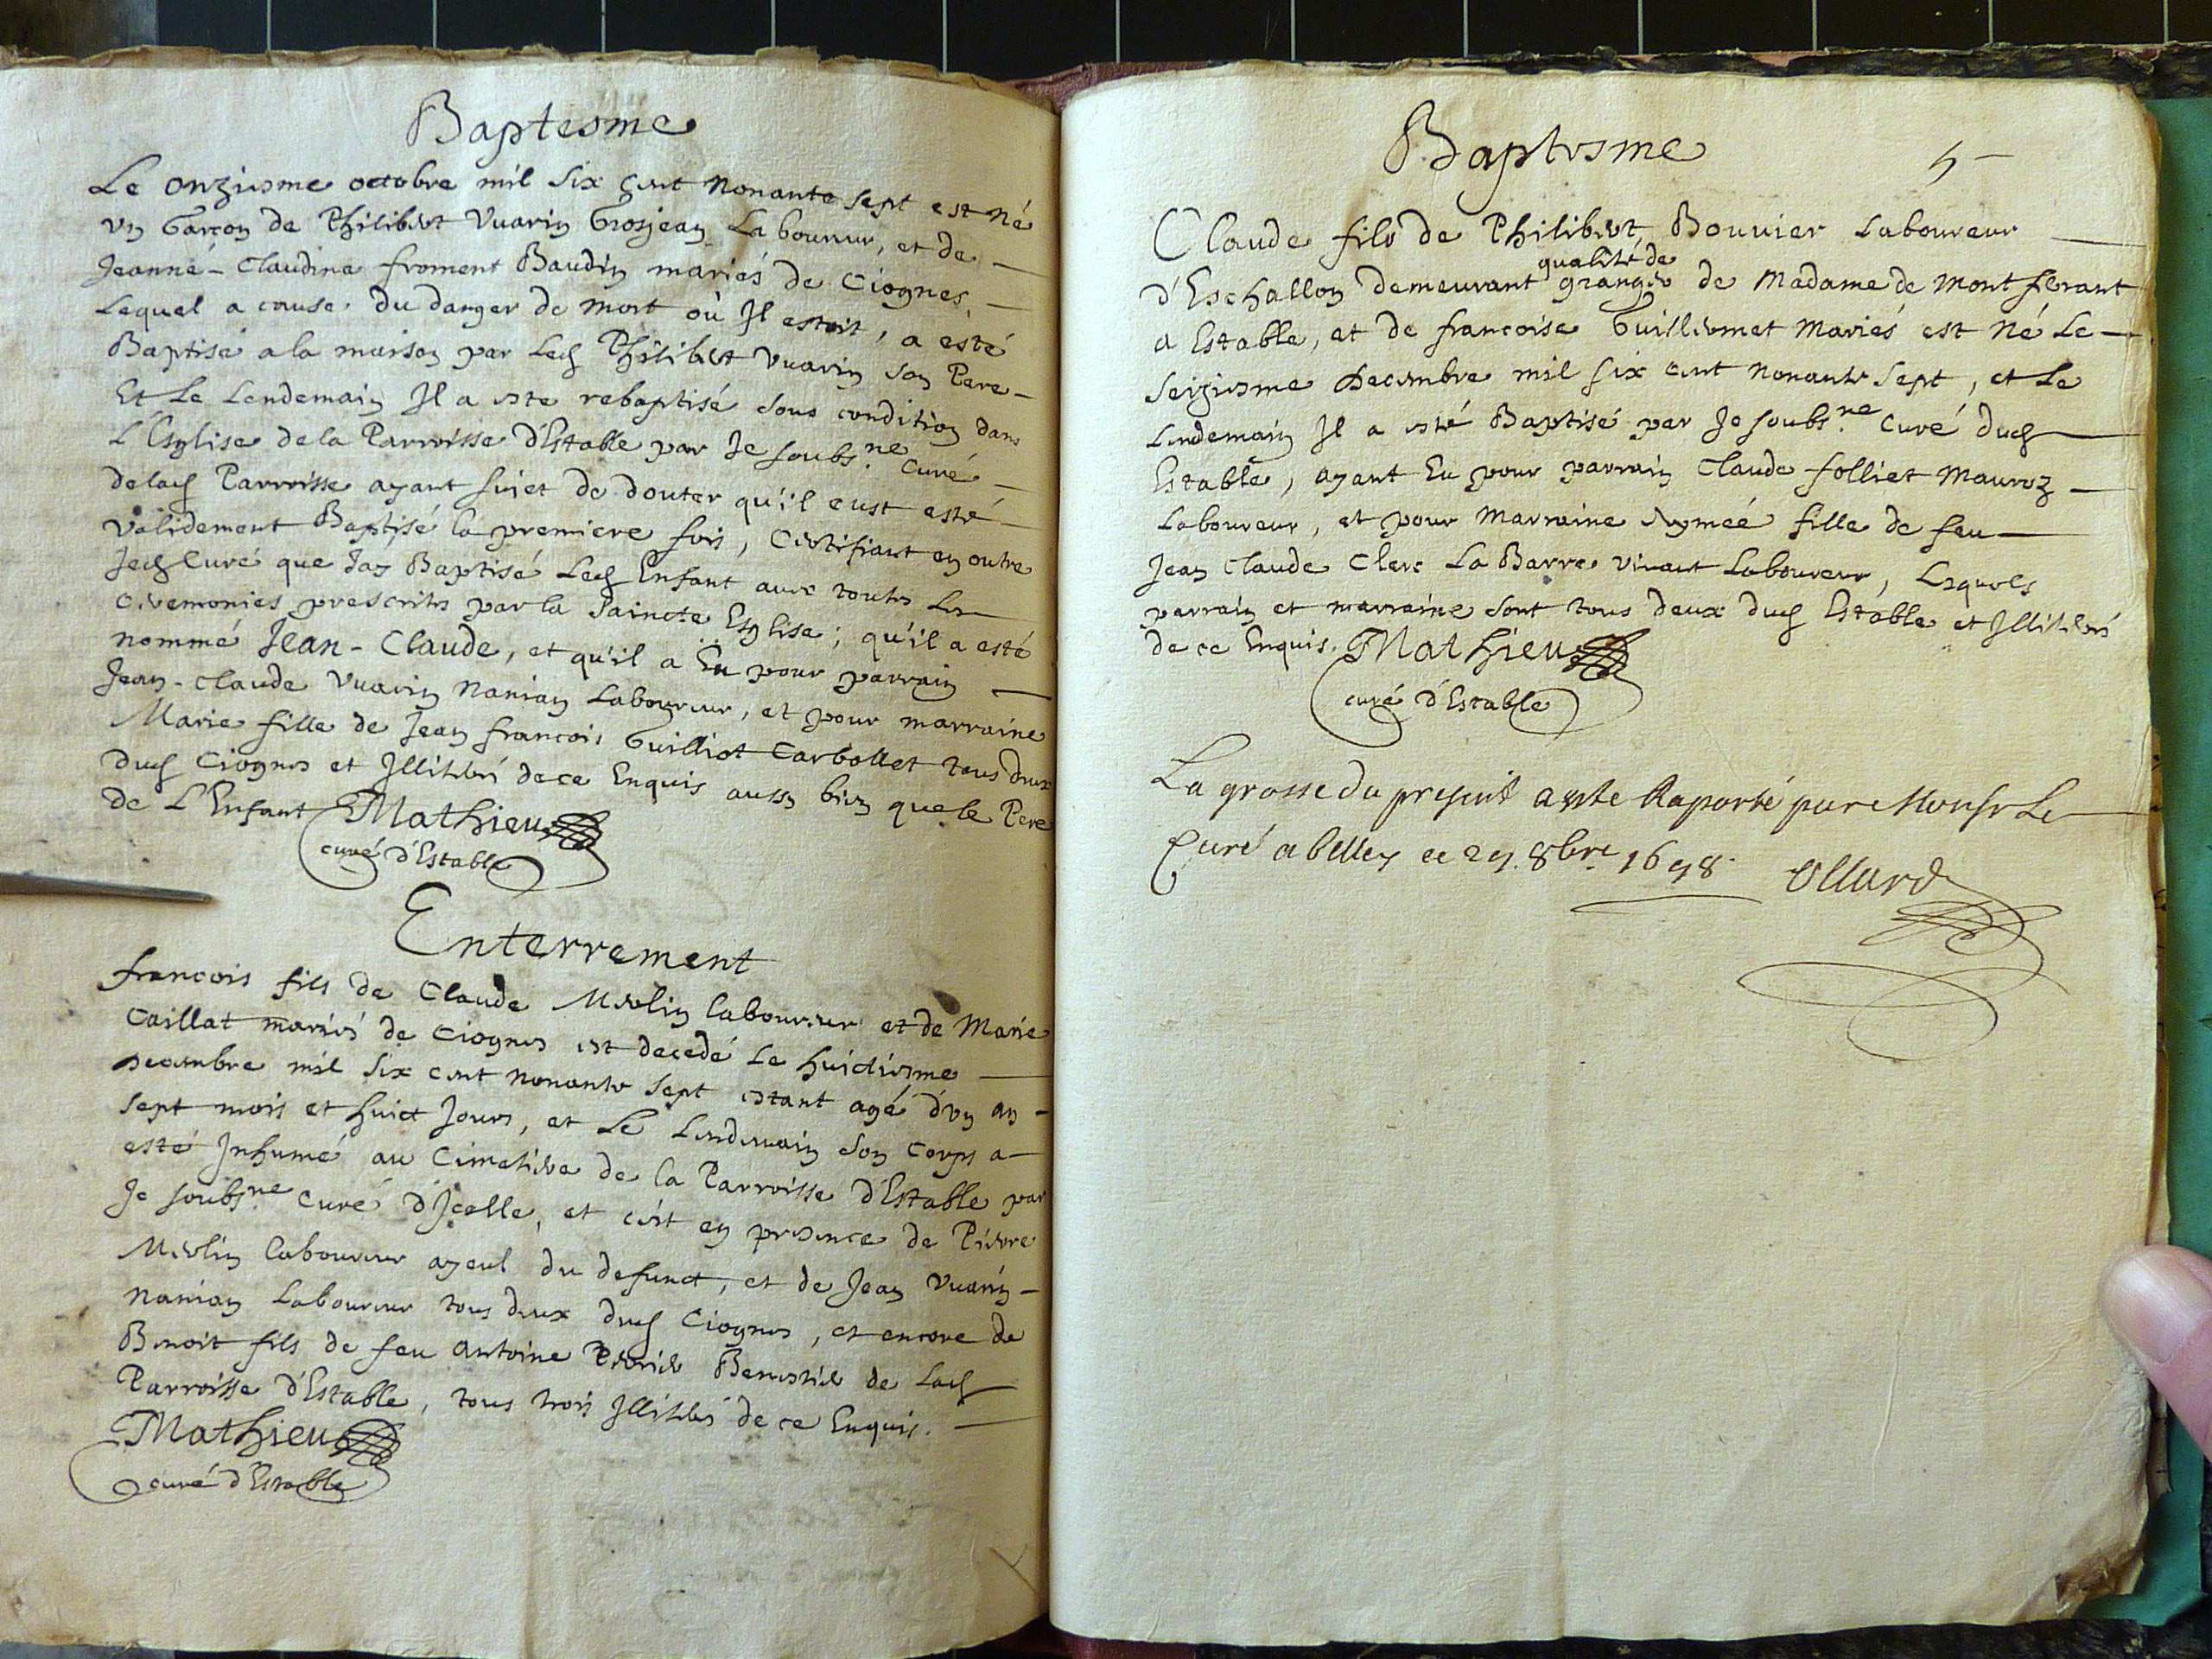 Baptesme
Le onziesme octobre mil six cent nonante sept est né
un Garcon de Philibert Vuarin Grosjean Laboureur, et de
Jeanne-Claudina froment Baudin mariés de Ciognes
Lequel a cause du danger de mort où Il estoit, a esté
Baptisé a la maison par Led. Philibert Vuarin son Pere
Et Le Lendemain Il a este rebaptisé sous condition dans
L'Esglise de la Parroisse d'Estable par Je soubs.né Curé
de lad. Parroisse ayant sujet de douter qu'il eust esté
validement Baptisé la premiere fois, Certifiant en outre
Jed. Curé que Jay Baptisé Led. Enfant avec toutes Les
ceremonies prescrites par la Saincte Esglise; qu'il a esté
nommé Jean-Claude, et qu'il a Eu pour parrain
Jean-Claude Vuarin Nanian Laboureur, et pour marraine
Marie fille de Jean francois Guilliot Carbollet tous deux
dud. Ciognes et Illiterés de ce Enquis aussy bien que le Pere
de L'Enfant Mathieu
curé d'Estable
Enterrement
francois fils de Claude Merlin laboureur et de Marie
Caillat mariés de Ciognes est decedé Le huictiesme
Decembre mil six cent nonante sept estant agé d'un an
sept mois et huict Jours, et Le Lendemain son corps a
esté Inhumé au Cimetiere de la Parroisse d'Estable par
Je soubs.né Curé d'Icelle, et c'est en presence de Pierre
Merlin laboureur ayeul du defunct, et de Jean Vuarin
Nanian Laboureur tous deux dud. Ciognes, et encore de
Benoit fils de feu Antoine Perrier Benestier de Lad.
Parroisse d'Estable, tous trois Illiterés de ce Enquis.
Mathieu
curé d'Estable
Baptesme
5
Claude fils de Philibert Bouvier Laboureur
qualité de
d'Eschallon demeurant granger de Madame de Montferrant
a Estable, et de francoise Guilliermet Mariés est Né Le
seiziesme Decembre mil six cent nonante sept, et Le
Lendemain Il a esté Baptisé par Je soubs.né Curé dud.
Estable, ayant Eu pour parrain Claude folliet Mauroz
Laboureur, et pour Marraine Aymeé fille de feu
Jean Claude Clerc La Barre vivant Laboureur, Lesquels
parrain et marraine sont tous deux dud. Estable et Illiterés
de ce Enquis. Mathieu
curé d'Estable
La grosse du present a este Raporté par Monsr Le
Curé a belley ce 29. 8bre 1698
Ollard